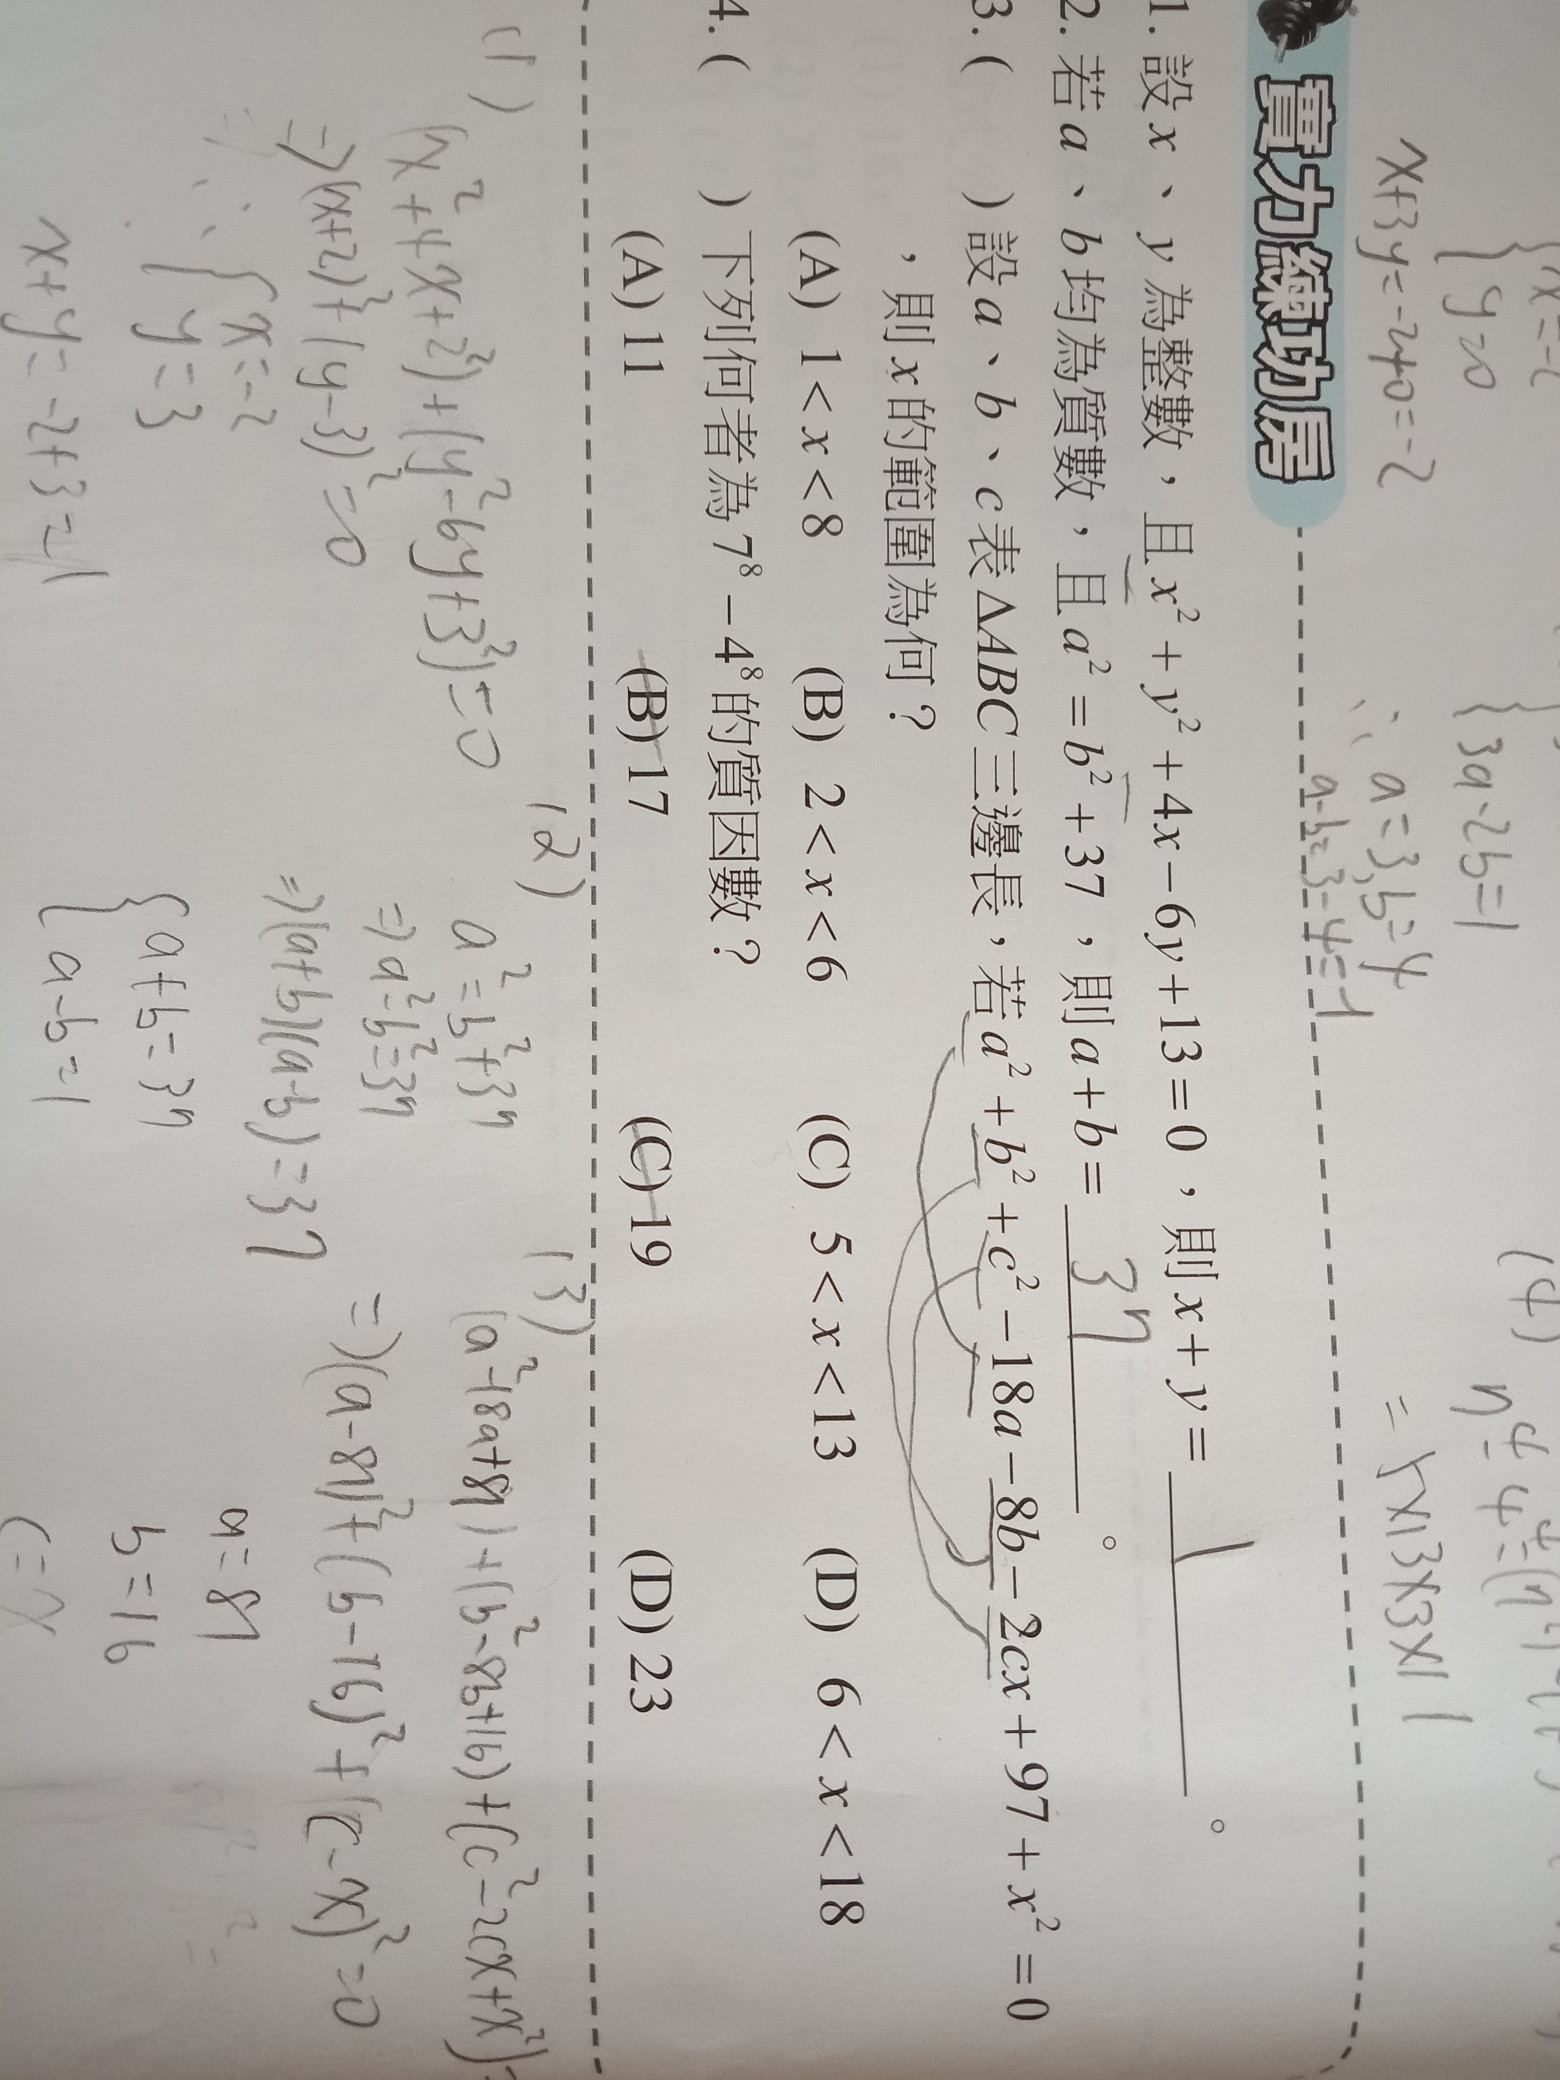 x+3y=-2+0=-2
{3a-2b=1
∴ a=3, b=4
a-b=3-4=-1
(4)
=5×13×3×11
實力練功房
1. 設x、y為整數，且x²+y²+4x-6y+13=0，則x+y= 1 。
2. 若a、b均為質數，且a²=b²+37，則a+b= 37 。
3. (　) 設a、b、c表ΔABC三邊長，若a²+b²+c²-18a-8b-2cx+97+x²=0
，則x的範圍為何？
(A) 1<x<8 (B) 2<x<6 (C) 5<x<13 (D) 6<x<18
4. (　) 下列何者為7⁸-4⁸的質因數？
(A) 11 (B) 17 (C) 19 (D) 23
(1)
(x²+4x+2²)+(y²-6y+3²)=0
=>(x+2)²+(y-3)²=0
∴ {x=-2
y=3
x+y=-2+3=1
(2)
a²=b²+37
=>a²-b²=37
=>(a+b)(a-b)=37
{a+b=37
a-b=1
(3)
(a²-18a+81)+(b²-8b+16)+(c²-2cx+x²)=
=>(a-81)²+(b-16)²+(c-x)²=0
a=81
b=16
c=x